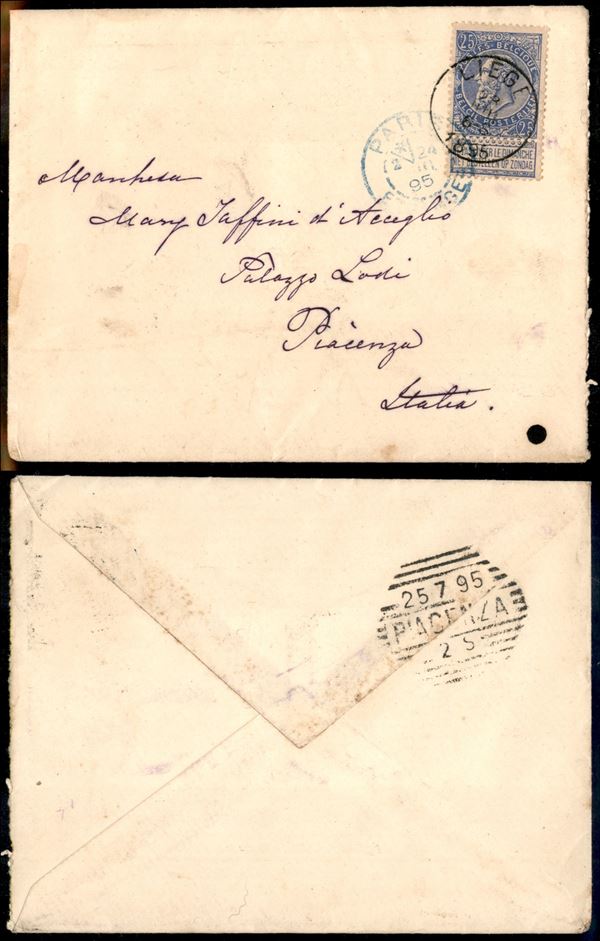 25 25
POSTES BELGIQUE
LIEGE
1895
PARIS
24
95
LE DIMANCHE
OP ZONDAG
Marchesa
Mary Taffini d'Acceglio
Palazzo Lodi
Piacenza
Italia.
25 7 95
PIACENZA
2 S